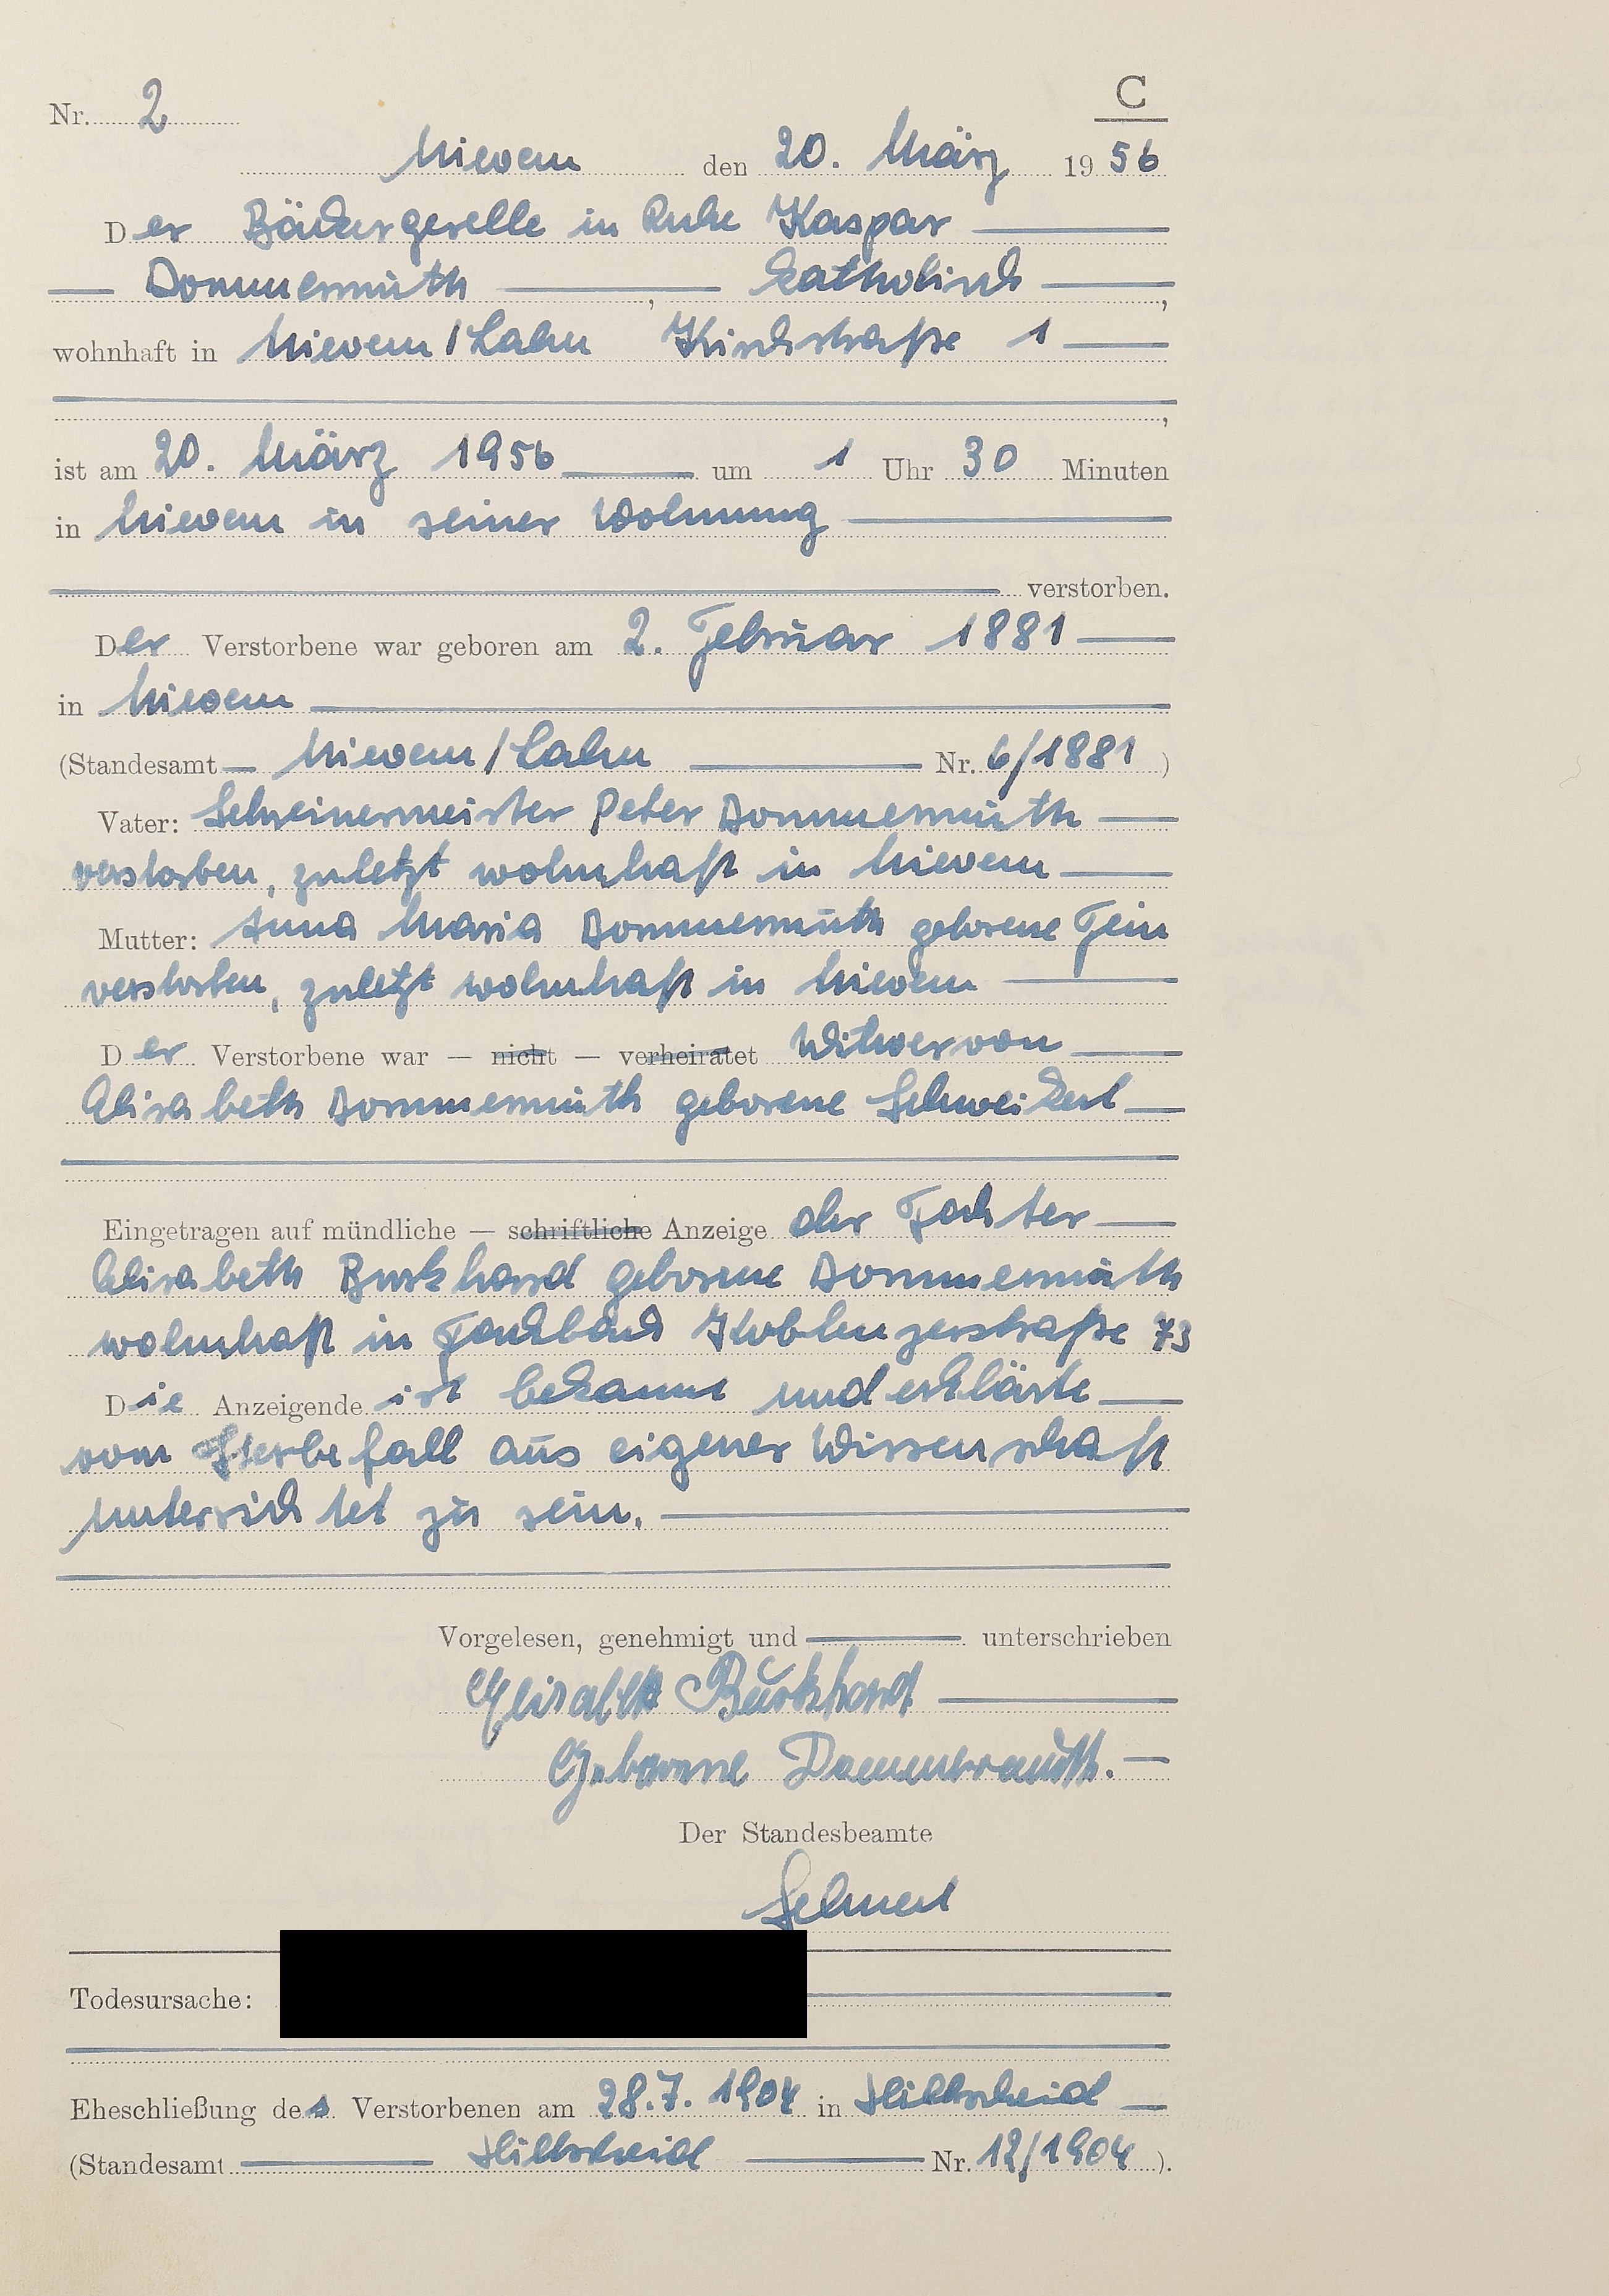 C
Nr. 2
Nievern den 20. März 1956
Der Bäckergeselle in Ruhe Kaspar
Dommermuth, katholisch,
wohnhaft in Nievern/Lahn Kirchstraße 1
,
ist am 20. März 1956 um 1 Uhr 30 Minuten
in Nievern in seiner Wohnung
verstorben.
Der Verstorbene war geboren am 2. Februar 1881
in Nievern
(Standesamt Nievern/Lahn Nr. 6/1881)
Vater: Schreinermeister Peter Dommermuth
verstorben, zuletzt wohnhaft in Nievern
Mutter: Anna Maria Dommermuth geborene Fein
verstorben, zuletzt wohnhaft in Nievern
Der Verstorbene war — nicht — verheiratet Witwer von
Elisabeth Dommermuth geborene Schweikert
Eingetragen auf mündliche — schriftliche Anzeige der Tochter
Elisabeth Burkhard geborene Dommermuth
wohnhaft in Fachbach Koblenzerstraße 73
Die Anzeigende ist bekannt und erklärte
vom Sterbefall aus eigener Wissenschaft
unterrichtet zu sein.
Vorgelesen, genehmigt und unterschrieben
Elisabeth Burkhard
Geborene Dommermuth.
Der Standesbeamte
Todesursache:
Eheschließung des Verstorbenen am 28.7.1904 in Hillscheid
(Standesamt Hillscheid Nr. 12/1904).